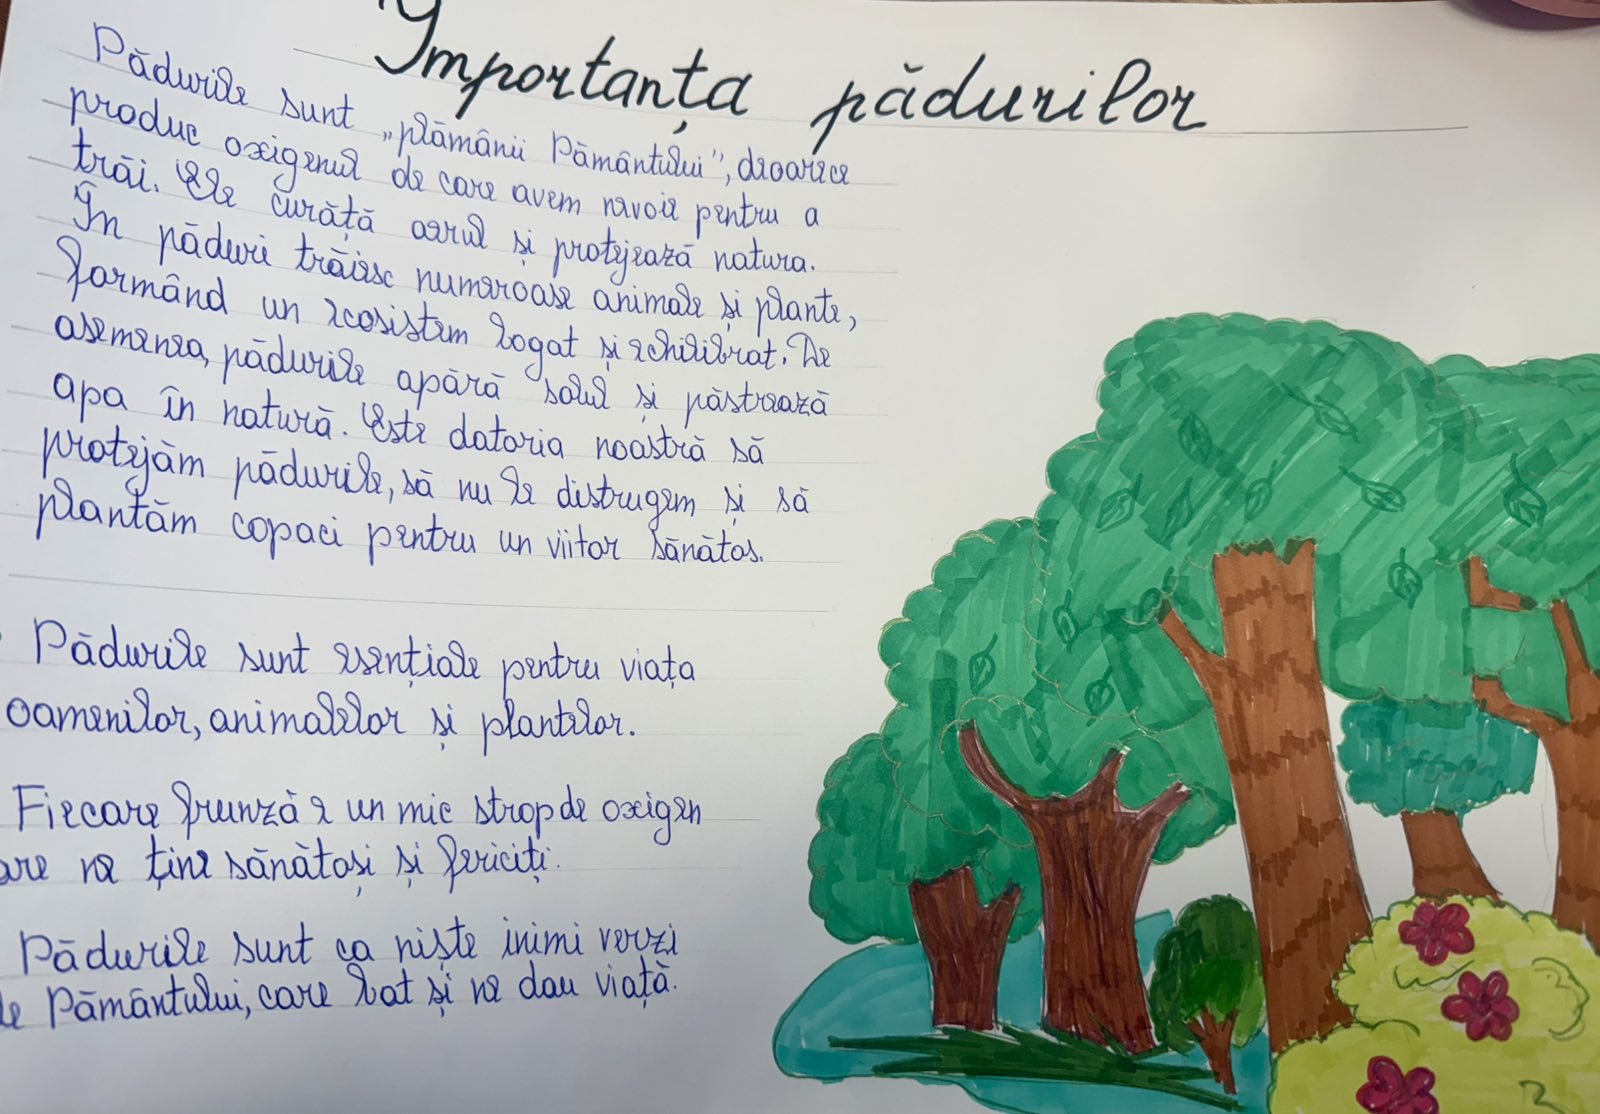 Importanța pădurilor
Pădurile sunt „plămânii Pământului”, deoarece
produc oxigenul de care avem nevoie pentru a
trăi. Ele curăță aerul și protejează natura.
În păduri trăiesc numeroase animale și plante,
formând un ecosistem bogat și echilibrat. De
asemenea, pădurile apără solul și păstrează
apa în natură. Este datoria noastră să
protejăm pădurile, să nu le distrugem și să
plantăm copaci pentru un viitor sănătos.
Pădurile sunt esențiale pentru viața
oamenilor, animalelor și plantelor.
Fiecare frunză e un mic strop de oxigen
are ne ține sănătoși și fericiți.
Pădurile sunt ca niște inimi verzi
le Pământului, care bat și ne dau viață.